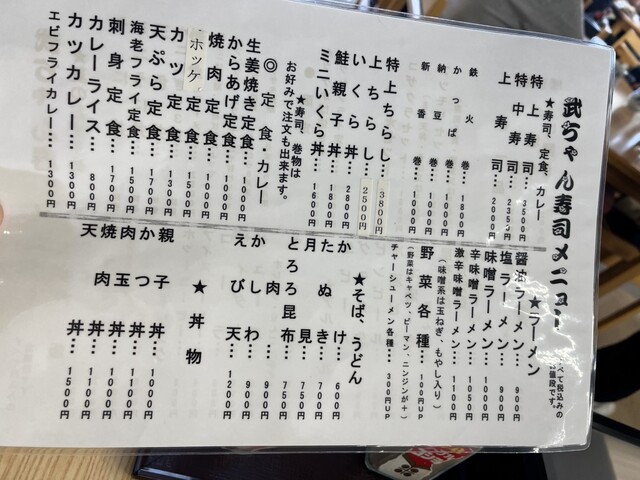 武ちゃん寿司メニュー
べて税込みの
お値段です。
★寿司、定食、カレー
特上寿司…3500円
特中寿司…2350円
上寿司…2000円
鉄火巻…1800円
かっぱ巻…1000円
納豆巻…1000円
新香巻…1000円
特上ちらし…3800円
上ちらし…2500円
いくら丼…2800円
鮭親子丼…1800円
ミニいくら丼…1600円
★寿司、巻物は
お好みで注文も出来ます。
◎定食・カレー
生姜焼き定食…1000円
からあげ定食…1000円
焼肉定食…
ホッケ
カツ定食…1300円
天ぷら定食…1700円
海老フライ定食…1500円
刺身定食…1500円
カレーライス…800円
カツカレー…1300円
エビフライカレー…1300円
★ラーメン
醤油ラーメン…900円
塩ラーメン…900円
味噌ラーメン…1000円
辛味噌ラーメン…1050円
激辛味噌ラーメン…1100円
(味噌系は玉ねぎ、もやし入り)
野菜各種…100円UP
(野菜はキャベツ、ピーマン、ニンジンが+)
チャーシューメン各種…300円UP
★そば、うどん
かけ…600円
たぬき…700円
月見…750円
とろろ昆布…750円
肉…900円
かしわ…900円
えび天…1200円
★丼物
親子丼…
かつ丼…1100円
肉玉丼…1100円
焼肉丼…1100円
天丼…1500円